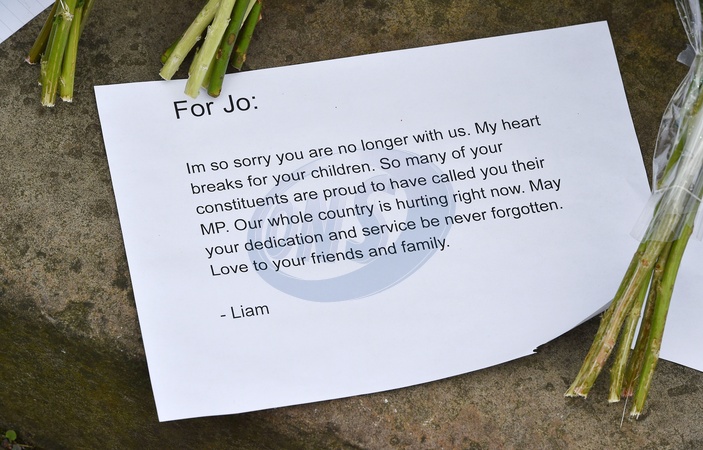 For Jo:
Im so sorry you are no longer with us. My heart
breaks for your children. So many of your
constituents are proud to have called you their
MP. Our whole country is hurting right now. May
your dedication and service be never forgotten.
Love to your friends and family.
- Liam